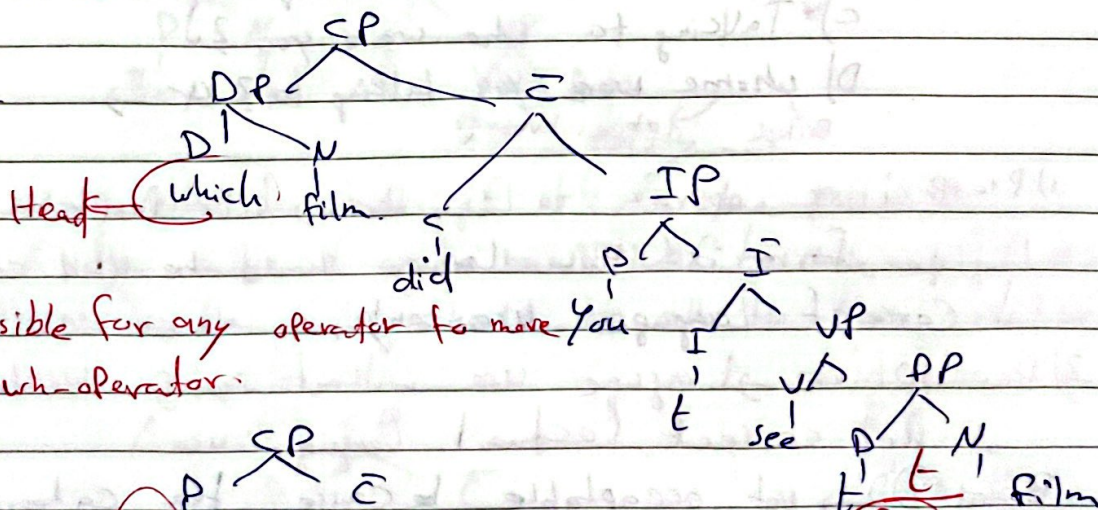 CP
DP C̄
D N
Head which film. C IP
did D Ī
sible for any operator to move You I VP
wh-operator. t V DP
see D N
CP t t film
D C̄